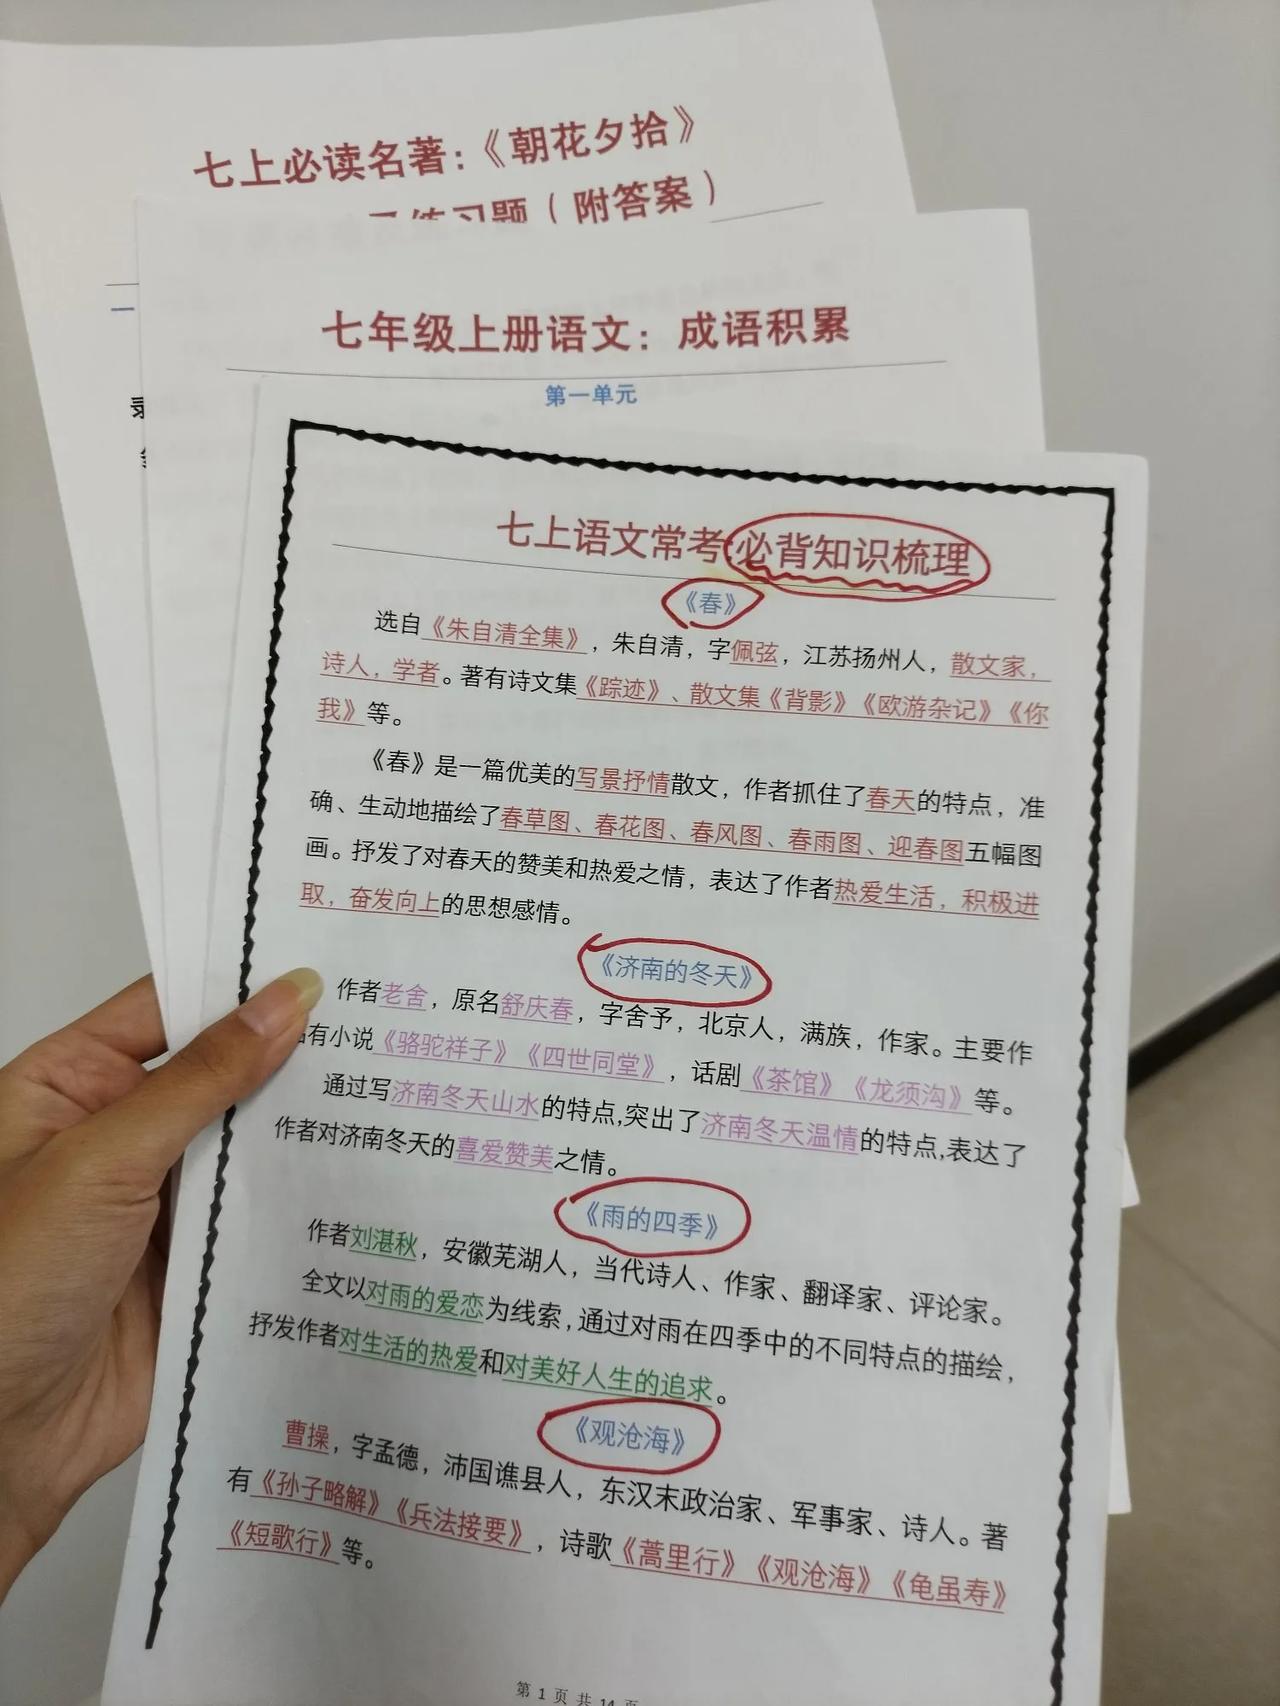 七上必读名著：《朝花夕拾》
练习题（附答案）
一
七年级上册语文：成语积累
第一单元
七上语文常考必背知识梳理
《春》
选自《朱自清全集》，朱自清，字佩弦，江苏扬州人，散文家，
诗人，学者。著有诗文集《踪迹》、散文集《背影》《欧游杂记》《你
我》等。
《春》是一篇优美的写景抒情散文，作者抓住了春天的特点，准
确、生动地描绘了春草图、春花图、春风图、春雨图、迎春图五幅图
画。抒发了对春天的赞美和热爱之情，表达了作者热爱生活，积极进
取，奋发向上的思想感情。
《济南的冬天》
作者老舍，原名舒庆春，字舍予，北京人，满族，作家。主要作
有小说《骆驼祥子》《四世同堂》，话剧《茶馆》《龙须沟》等。
通过写济南冬天山水的特点,突出了济南冬天温情的特点,表达了
作者对济南冬天的喜爱赞美之情。
《雨的四季》
作者刘湛秋，安徽芜湖人，当代诗人、作家、翻译家、评论家。
全文以对雨的爱恋为线索,通过对雨在四季中的不同特点的描绘，
抒发作者对生活的热爱和对美好人生的追求。
《观沧海》
曹操，字孟德，沛国谯县人，东汉末政治家、军事家、诗人。著
有《孙子略解》《兵法接要》，诗歌《蒿里行》《观沧海》《龟虽寿》
《短歌行》等。
第 1 页 共 14 页